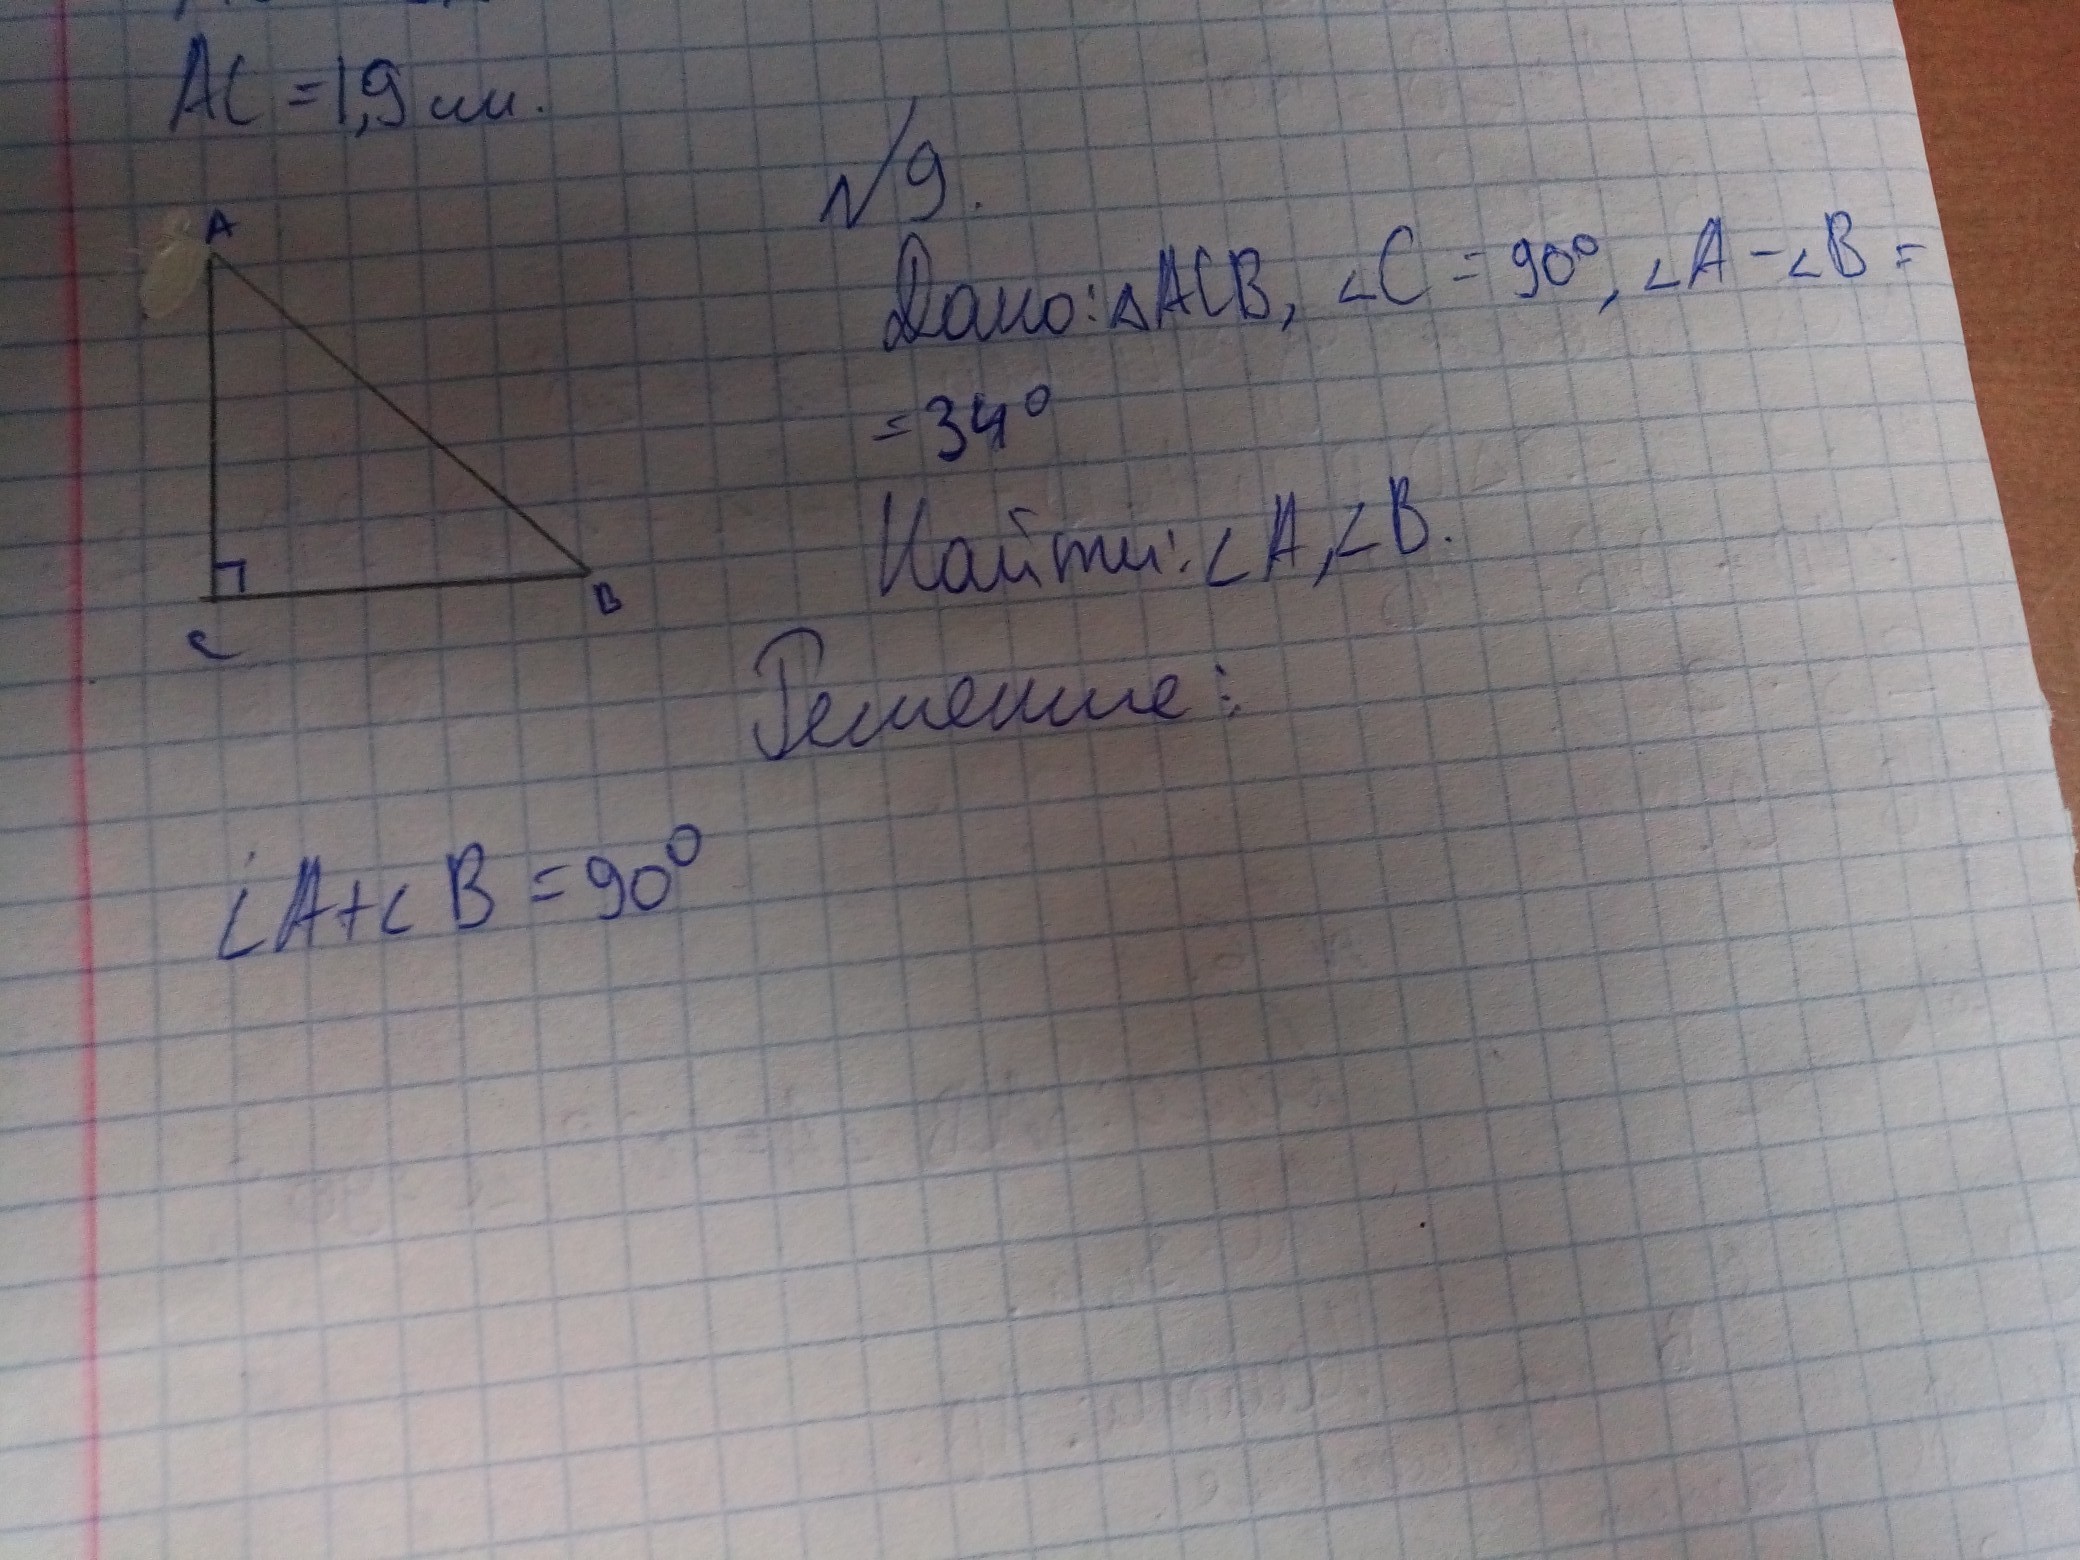 AC = 1,9 см.
№9.
A
Дано: △ACB, ∠C = 90°, ∠A - ∠B =
= 34°
Найти: ∠A, ∠B.
C
B
Решение:
∠A+∠B = 90°